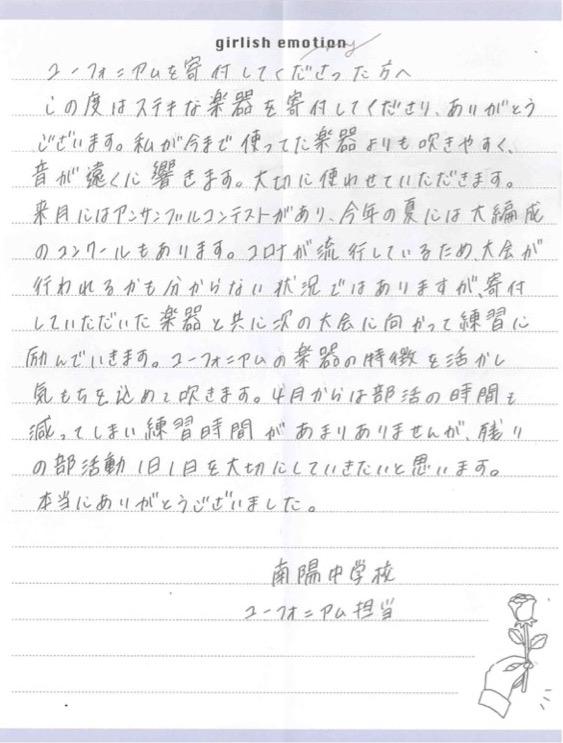 girlish emotion
ユーフォニアムを寄付してくださった方へ
この度はステキな楽器を寄付してくださり、ありがとう
ございます。私が今まで使ってた楽器よりも吹きやすく、
音が遠くに響きます。大切に使わせていただきます。
来月にはアンサンブルコンテストがあり、今年の夏には大編成
のコンクールもあります。コロナが流行しているため、大会が
行われるかも分からない状況ではありますが、寄付
していただいた楽器と共に次の大会に向かって練習に
励んでいきます。ユーフォニアムの楽器の特徴を活かし
気もちを込めて吹きます。4月からは部活の時間も
減ってしまい練習時間があまりありませんが、残り
の部活動1日1日を大切にしていきたいと思います。
本当にありがとうございました。
南陽中学校
ユーフォニアム担当